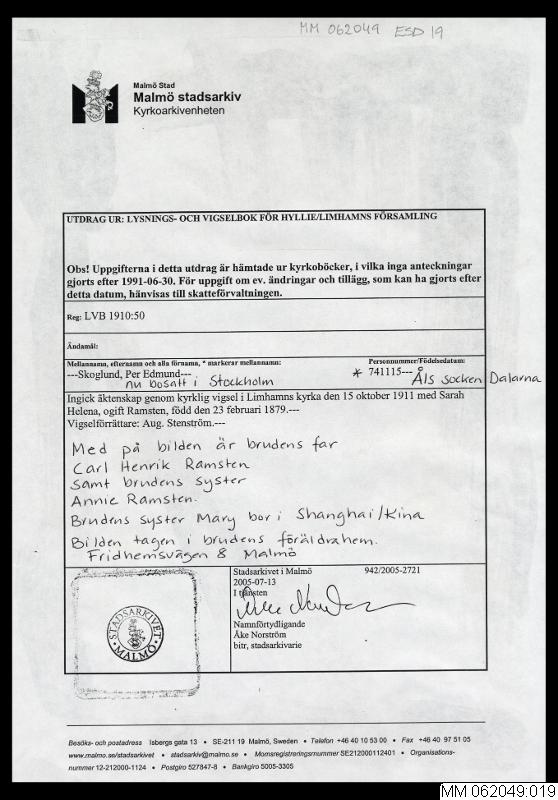 MM 062049 ESD 19
Malmö Stad
Malmö stadsarkiv
Kyrkoarkivenheten
UTDRAG UR: LYSNINGS- OCH VIGSELBOK FÖR HYLLIE/LIMHAMNS FÖRSAMLING
Obs! Uppgifterna i detta utdrag är hämtade ur kyrkoböcker, i vilka inga anteckningar
gjorts efter 1991-06-30. För uppgift om ev. ändringar och tillägg, som kan ha gjorts efter
detta datum, hänvisas till skatteförvaltningen.
Reg: LVB 1910:50
Ändamål:
Mellannamn, efternamn och alla förnamn, * markerar mellannamn: Personnummer/Födelsedatum:
---Skoglund, Per Edmund--- * 741115--- Åls socken Dalarna
nu bosatt i Stockholm
Ingick äktenskap genom kyrklig vigsel i Limhamns kyrka den 15 oktober 1911 med Sarah
Helena, ogift Ramsten, född den 23 februari 1879.---
Vigselförrättare: Aug. Stenström.---
Med på bilden är brudens far
Carl Henrik Ramsten
samt brudens syster
Annie Ramsten.
Brudens syster Mary bor i Shanghai/Kina
Bilden tagen i brudens föräldrahem.
Fridhemsvägen 8 Malmö
Stadsarkivet i Malmö 942/2005-2721
2005-07-13
I tjänsten
Namnförtydligande
Åke Norström
bitr, stadsarkivarie
STADSARKIVET
MALMÖ
Besöks- och postadress Isbergs gata 13 • SE-211 19 Malmö, Sweden • Telefon +46 40 10 53 00 • Fax +46 40 97 51 05
www.malmo.se/stadsarkivet • stadsarkiv@malmo.se • Momsregistreringsnummer SE212000112401 • Organisations-
nummer 12-212000-1124 • Postgiro 527847-8 • Bankgiro 5005-3305
MM 062049:019